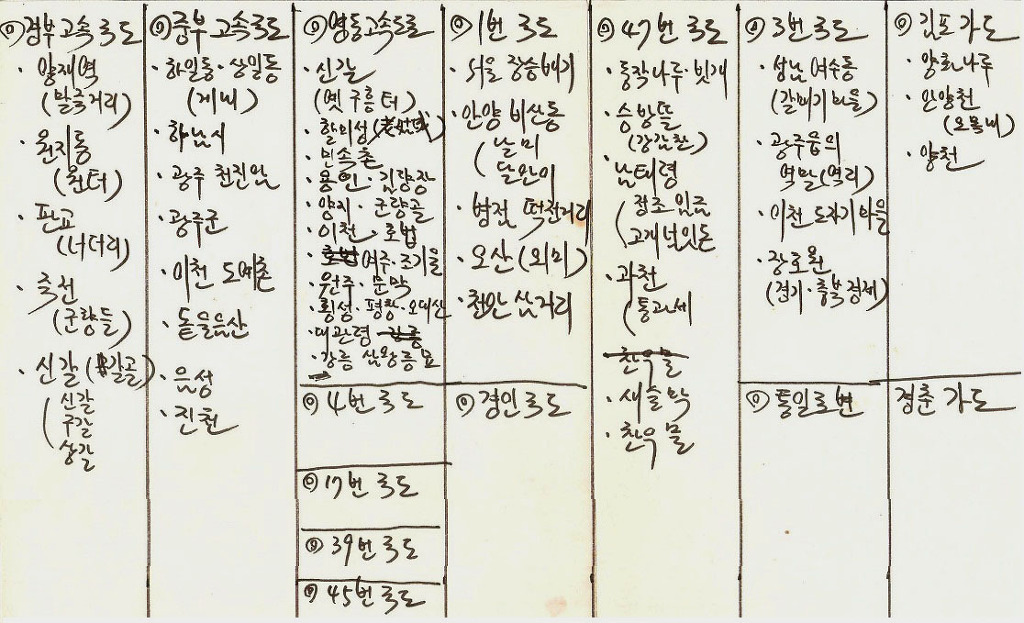 경부고속국도
· 양재역
(말죽거리)
· 원지동
(원터)
· 판교
(너더리)
· 죽전
(군량뜰)
· 신갈(갈골)
신갈
구갈
상갈
중부고속국도
· 하일동·상일동
(게내)
· 하남시
· 광주 천진암
· 광주군
· 이천 도예촌
· 돋을음산
· 음성
· 진천
영동고속도로
· 신갈
(옛 구흥터)
· 할미성(老姑城)
· 민속촌
· 용인·김량장
· 양지·군량골
· 이천·호법
· 여주·조기울
· 원주·문막
· 횡성·평창·오대산
· 대관령
· 강릉 삼왕릉묘
4번 국도
17번 국도
39번 국도
45번 국도
1번 국도
· 서울 장승배기
· 안양 비산동
(날미
달안이
· 병점 떡전거리
· 오산(외미)
· 천안 삼거리
경인국도
47번 국도
· 동작나루·빗개
· 승방뜰
(강감찬)
· 남태령
(정조 임금
고개 넘던
· 과천
(통과세
찬우물
· 새술막
· 찬우물
3번 국도
· 성남 여수동
(갈매기마을)
· 광주읍의
역말(역리)
· 이천 도자기 마을
· 장호원
(경기·충북 경계)
통일로변
김포 가도
· 양화나루
· 안양천
(오목내)
· 양천
경춘 가도